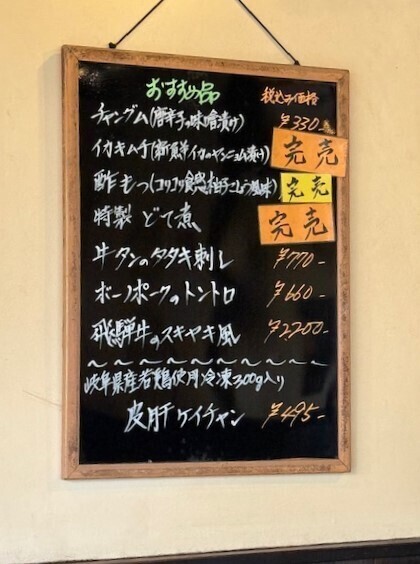 おすすめ品 税込み価格
チャングム(唐辛子の味噌漬け) ¥330-
イカキムチ(新鮮イカのヤンニョム漬け) 完売
酢もつ(コリコリ食感 柚子こしょう風味) 完売
特製 どて煮 完売
牛タンのタタキ刺し ¥770-
ボーノポークのトントロ ¥660-
飛騨牛のスキヤキ風 ¥2,200-
〜〜〜〜〜〜〜〜〜〜〜
岐阜県産若鶏使用冷凍300g入り
皮肝ケイチャン ¥495-